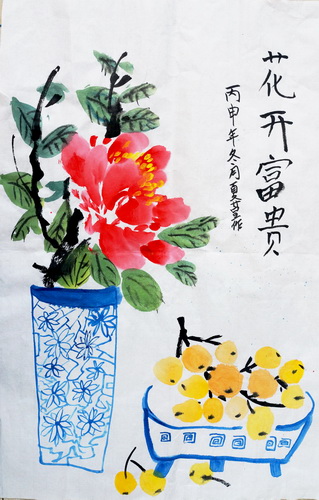 花开富贵
丙申年冬月